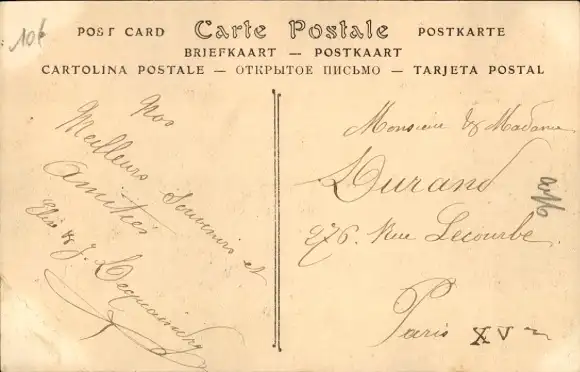 10f
POST CARD Carte Postale POSTKARTE
BRIEFKAART — POSTKAART
CARTOLINA POSTALE — ОТКРЫТОЕ ПИСЬМО — TARJETA POSTAL
Nos
Meilleurs Souvenirs et
Amitiés
Monsieur & Madame
Durand
276. Rue Lecourbe
Paris XVe